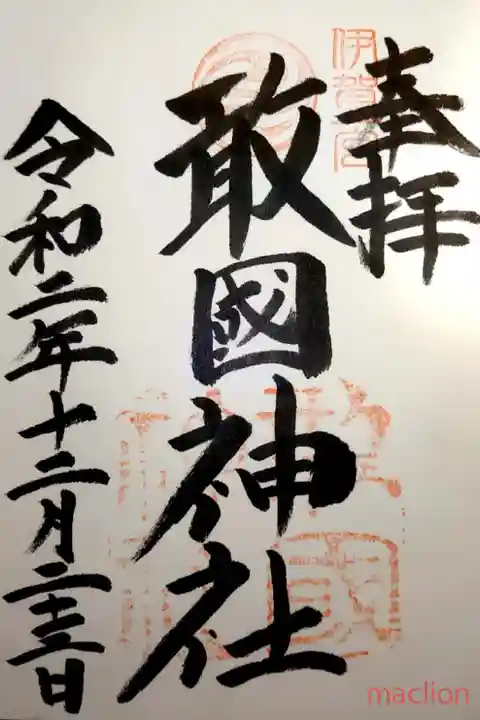 奉拝
伊賀一宮
敢國神社
令和二年十二月二十三日
maclion